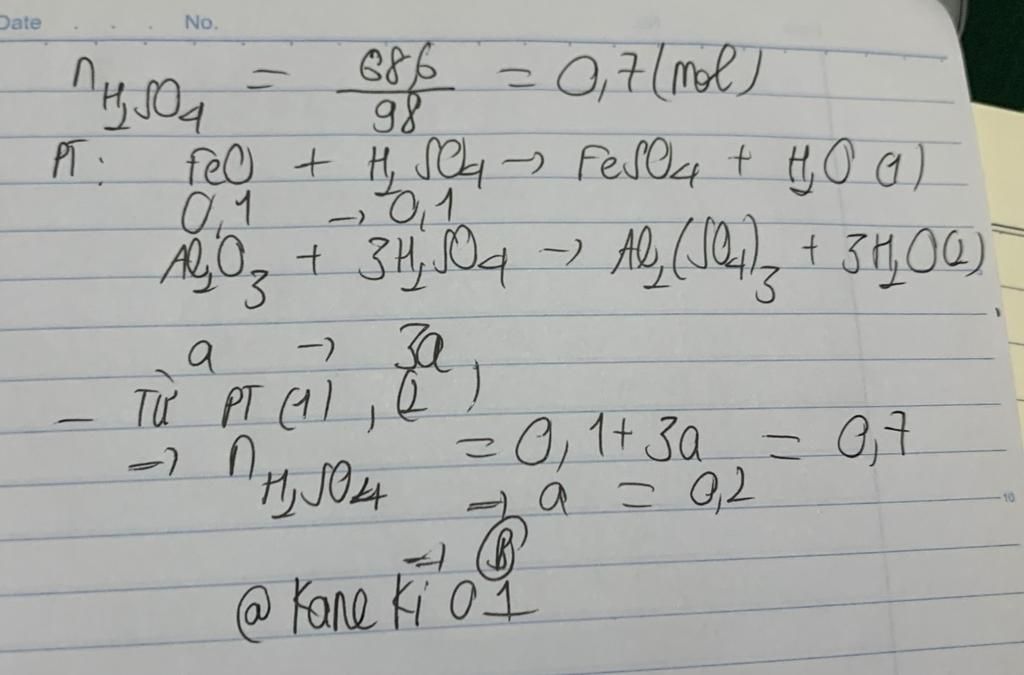 Date . . . No.
n H₂SO₄ = 68,6 / 98 = 0,7 (mol)
PT: FeO + H₂SO₄ → FeSO₄ + H₂O (1)
0,1 → 0,1
Al₂O₃ + 3H₂SO₄ → Al₂(SO₄)₃ + 3H₂O (2)
a → 3a
- Từ PT (1), (2)
=> n H₂SO₄ = 0,1 + 3a = 0,7
=> a = 0,2
=> B
@Kane Ki 01
10